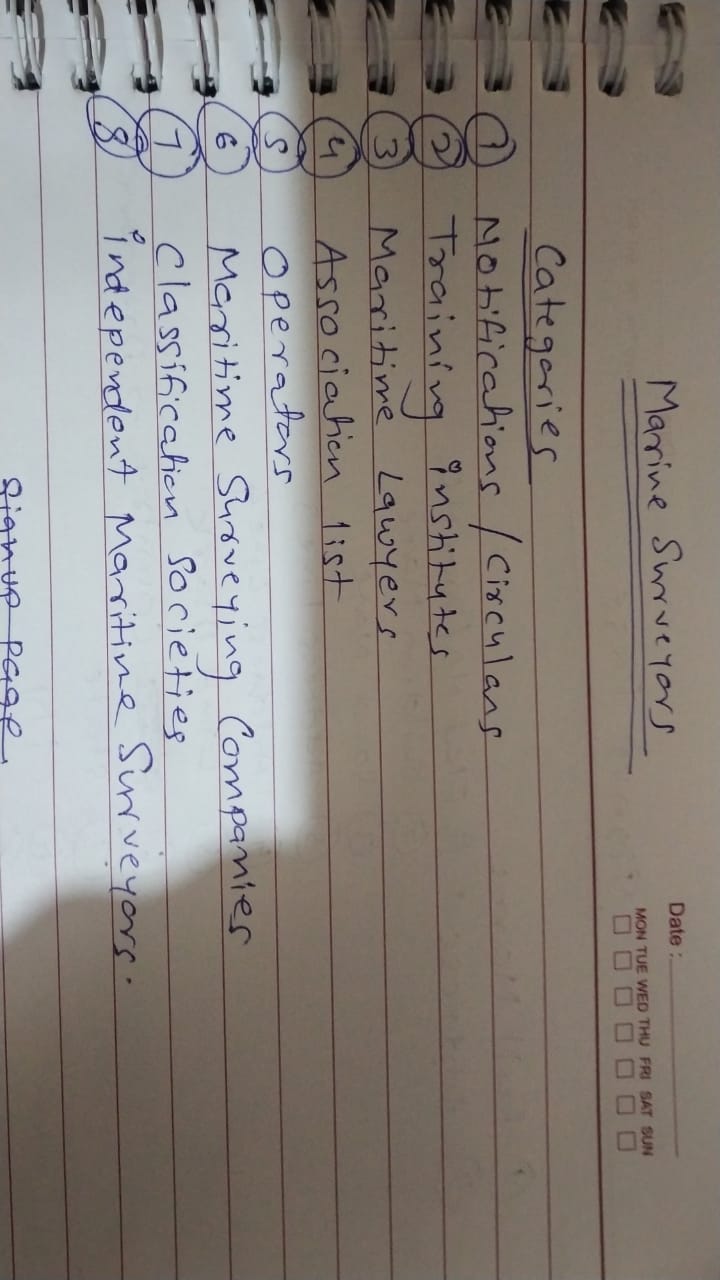 Date :
MON TUE WED THU FRI SAT SUN
Marine Surveyors
Categories
1 Notifications / Circulars
2 Training institutes
3 Maritime Lawyers
4 Association list
5 Operators
6 Maritime Surveying Companies
7 Classification Societies
8 independent Maritime Surveyors.
Signup Page